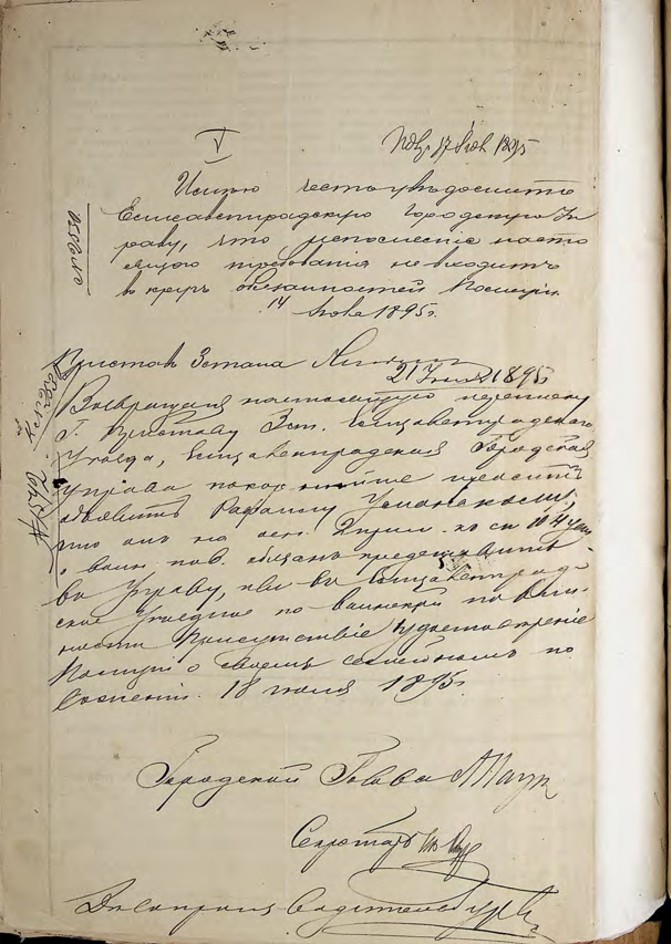 V
17 Июл 1895
Имѣю честь увѣдомить
Елисаветградскую Городскую Уп
раву, что исполненіе насто
ящаго требованія не входитъ
въ кругъ обязанностей Полиціи.
14 Июля 1895 г.
Приставъ 3 стана
21 Июля 1895
Возвращая настоящую переписку
Г. Приставу 3 ст. Елисаветградскаго
Уѣзда, Елисаветградская Городская
Управа покорнѣйше проситъ
объявить Рафаилу Уманскому,
что онъ на осн. 2 прим. къ ст
о воин. пов. обязанъ представить
въ Управу, или въ Елисаветград-
ское Уѣздное по воинской повин-
ности Присутствіе удостовѣреніе
Полиціи о своемъ семейномъ по
ложеніи. 18 июля 1895 г.
Городской Голова
Секретарь